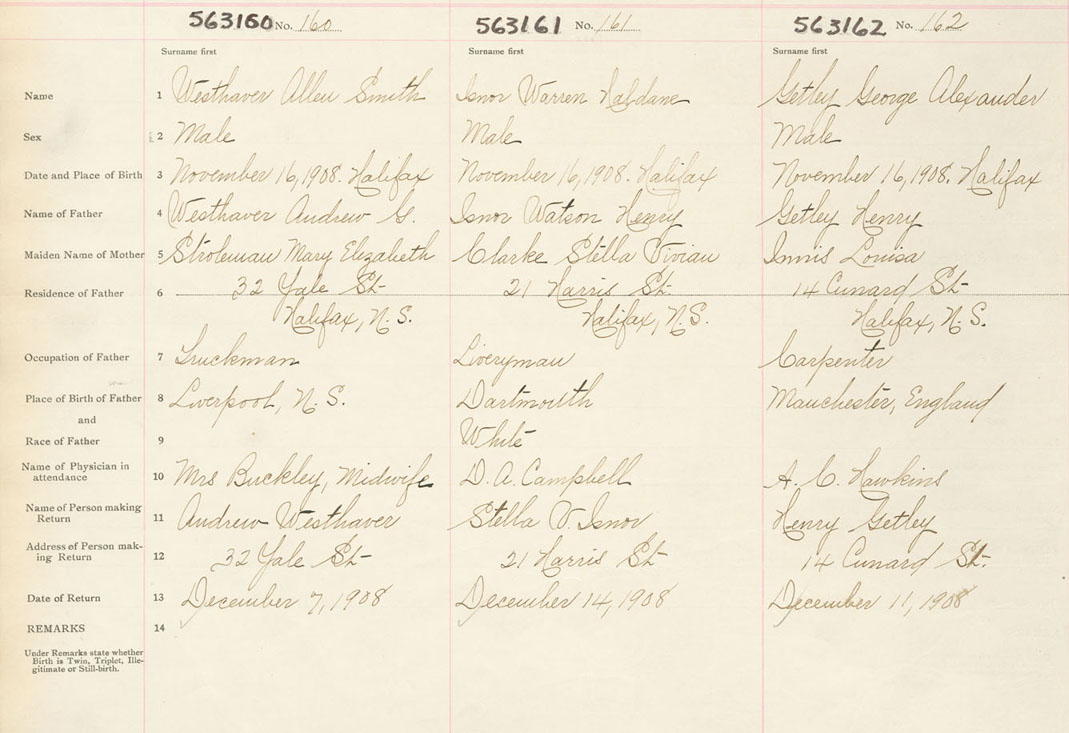 563160 No. 160 563161 No. 161 563162 No. 162
Surname first Surname first Surname first
Name 1 Westhaver Allen Smith Isnor Warren Haldane Getley George Alexander
Sex 2 Male Male Male
Date and Place of Birth 3 November 16, 1908. Halifax November 16, 1908. Halifax November 16, 1908. Halifax
Name of Father 4 Westhaver Andrew G. Isnor Watson Henry Getley Henry
Maiden Name of Mother 5 Mary Elizabeth Clarke Stella Vivian Innis Louisa
Residence of Father 6 32 Yale St 21 Harris St. 14 Cunard St
Halifax, N.S. Halifax, N.S. Halifax, N.S.
Occupation of Father 7 Truckman Liveryman Carpenter
Place of Birth of Father 8 Liverpool, N.S. Dartmouth Manchester, England
and
Race of Father 9 White
Name of Physician in
attendance 10 Mrs Buckley, Midwife D. A. Campbell A. C. Hawkins
Name of Person making
Return 11 Andrew Westhaver Stella V. Isnor Henry Getley
Address of Person mak-
ing Return 12 32 Yale St 21 Harris St 14 Cunard St.
Date of Return 13 December 7, 1908 December 14, 1908 December 11, 1908
REMARKS 14
Under Remarks state whether
Birth is Twin, Triplet, Ille-
gitimate or Still-birth.